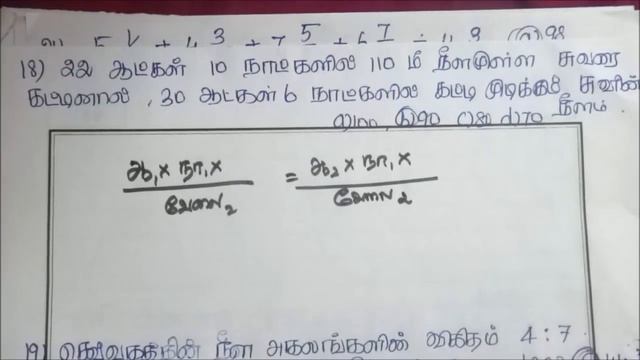 18) 22 ஆட்கள் 10 நாட்களில் 110 மீ நீளமுள்ள சுவரை
கட்டினால், 30 ஆட்கள் 6 நாட்களில் கட்டி முடிக்கும் சுவரின்
a)100, b)90 c)80 d)70 நீளம்.
ஆ₁ x நா₁ x = ஆ₂ x நா₁ x
வேலை₂ வேலை₂
19) செவ்வகத்தின் நீள அகலங்களின் விகிதம் 4:7